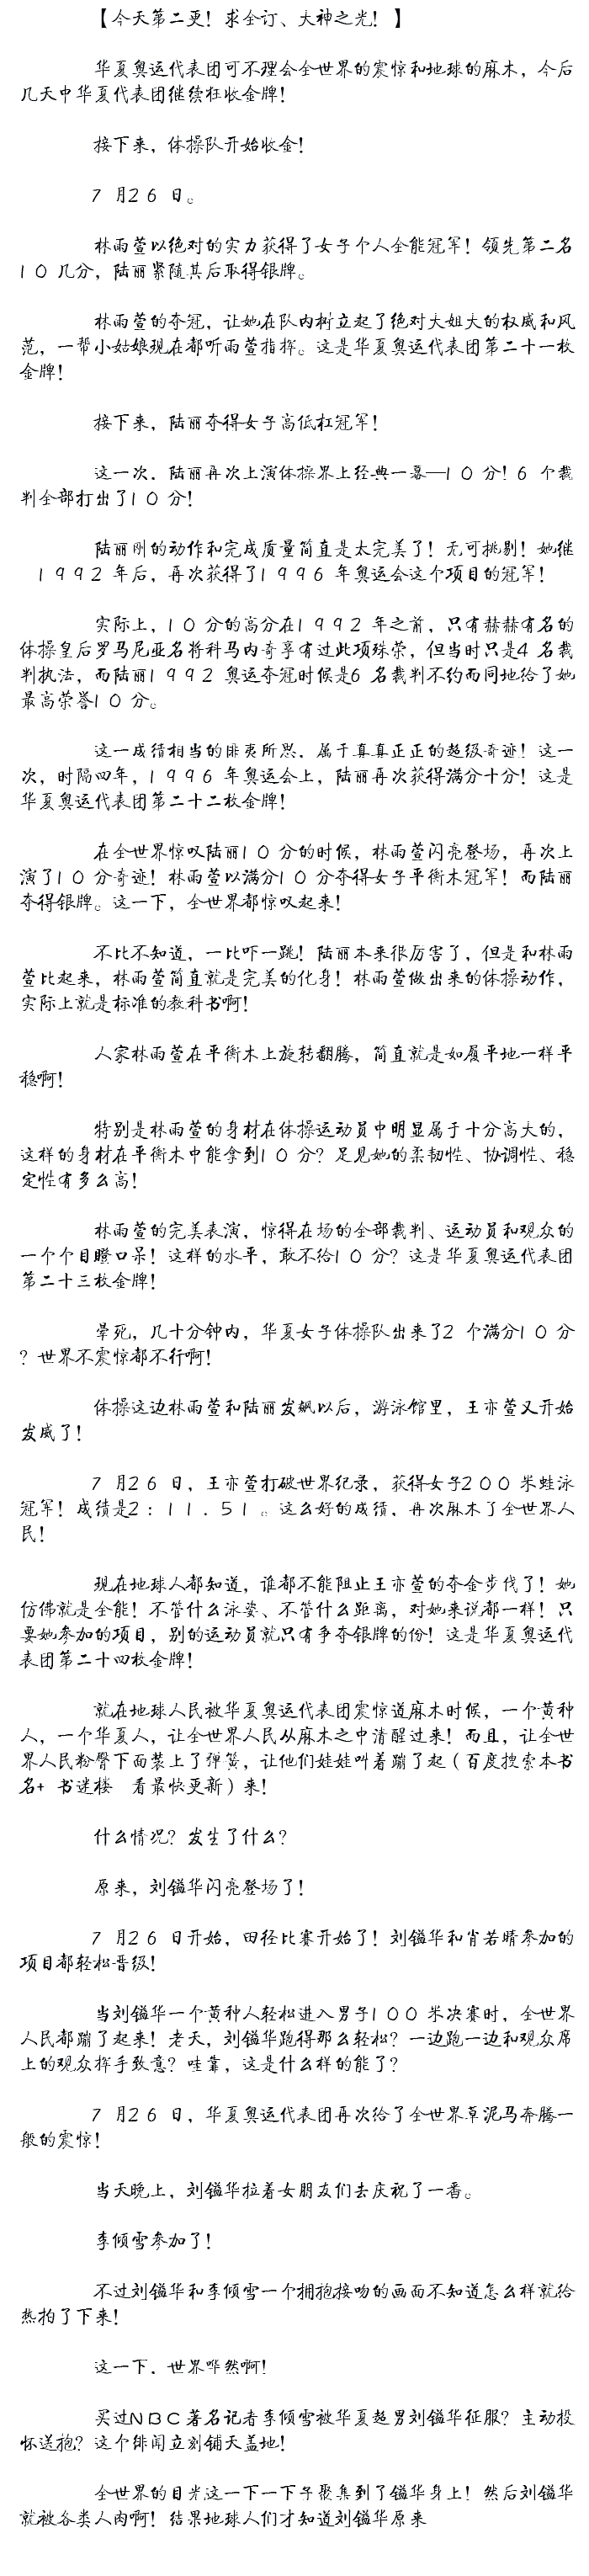 【今天第二更！求全订、大神之光！】
华夏奥运代表团可不理会全世界的震惊和地球的麻木，今后
几天中华夏代表团继续狂收金牌！
接下来，体操队开始收金！
7月26日。
林雨萱以绝对的实力获得了女子个人全能冠军！领先第二名
10几分，陆丽紧随其后取得银牌。
林雨萱的夺冠，让她在队内树立起了绝对大姐大的权威和风
范，一帮小姑娘现在都听雨萱指挥。这是华夏奥运代表团第二十一枚
金牌！
接下来，陆丽夺得女子高低杠冠军！
这一次，陆丽再次上演体操界上经典一幕—10分！6个裁
判全部打出了10分！
陆丽刚的动作和完成质量简直是太完美了！无可挑剔！她继
1992年后，再次获得了1996年奥运会这个项目的冠军！
实际上，10分的高分在1992年之前，只有赫赫有名的
体操皇后罗马尼亚名将科马内奇享有过此项殊荣，但当时只是4名裁
判执法，而陆丽1992奥运夺冠时候是6名裁判不约而同地给了她
最高荣誉10分。
这一成绩相当的匪夷所思，属于真真正正的超级奇迹！这一
次，时隔四年，1996年奥运会上，陆丽再次获得满分十分！这是
华夏奥运代表团第二十二枚金牌！
在全世界惊叹陆丽10分的时候，林雨萱闪亮登场，再次上
演了10分奇迹！林雨萱以满分10分夺得女子平衡木冠军！而陆丽
夺得银牌。这一下，全世界都惊叹起来！
不比不知道，一比吓一跳！陆丽本来很厉害了，但是和林雨
萱比起来，林雨萱简直就是完美的化身！林雨萱做出来的体操动作，
实际上就是标准的教科书啊！
人家林雨萱在平衡木上旋转翻腾，简直就是如履平地一样平
稳啊！
特别是林雨萱的身材在体操运动员中明显属于十分高大的，
这样的身材在平衡木中能拿到10分？足见她的柔韧性、协调性、稳
定性有多么高！
林雨萱的完美表演，惊得在场的全部裁判、运动员和观众的
一个个目瞪口呆！这样的水平，敢不给10分？这是华夏奥运代表团
第二十三枚金牌！
晕死，几十分钟内，华夏女子体操队出来了2个满分10分
？世界不震惊都不行啊！
体操这边林雨萱和陆丽发飙以后，游泳馆里，王亦萱又开始
发威了！
7月26日，王亦萱打破世界纪录，获得女子200米蛙泳
冠军！成绩是2：11．51。这么好的成绩，再次麻木了全世界人
民！
现在地球人都知道，谁都不能阻止王亦萱的夺金步伐了！她
仿佛就是全能！不管什么泳姿、不管什么距离，对她来说都一样！只
要她参加的项目，别的运动员就只有争夺银牌的份！这是华夏奥运代
表团第二十四枚金牌！
就在地球人民被华夏奥运代表团震惊道麻木时候，一个黄种
人，一个华夏人，让全世界人民从麻木之中清醒过来！而且，让全世
界人民粉臀下面装上了弹簧，让他们娃娃叫着蹦了起（百度搜索本书
名+ 书迷楼 看最快更新）来！
什么情况？发生了什么？
原来，刘镒华闪亮登场了！
7月26日开始，田径比赛开始了！刘镒华和肖若晴参加的
项目都轻松晋级！
当刘镒华一个黄种人轻松进入男子100米决赛时，全世界
人民都蹦了起来！老天，刘镒华跑得那么轻松？一边跑一边和观众席
上的观众挥手致意？哇靠，这是什么样的能了？
7月26日，华夏奥运代表团再次给了全世界草泥马奔腾一
般的震惊！
当天晚上，刘镒华拉着女朋友们去庆祝了一番。
李倾雪参加了！
不过刘镒华和李倾雪一个拥抱接吻的画面不知道怎么样就给
热拍了下来！
这一下，世界哗然啊！
买过NBC著名记者李倾雪被华夏超男刘镒华征服？主动投
怀送抱？这个绯闻立刻铺天盖地！
全世界的目光这一下一下子聚集到了镒华身上！然后刘镒华
就被各类人肉啊！结果地球人们才知道刘镒华原来